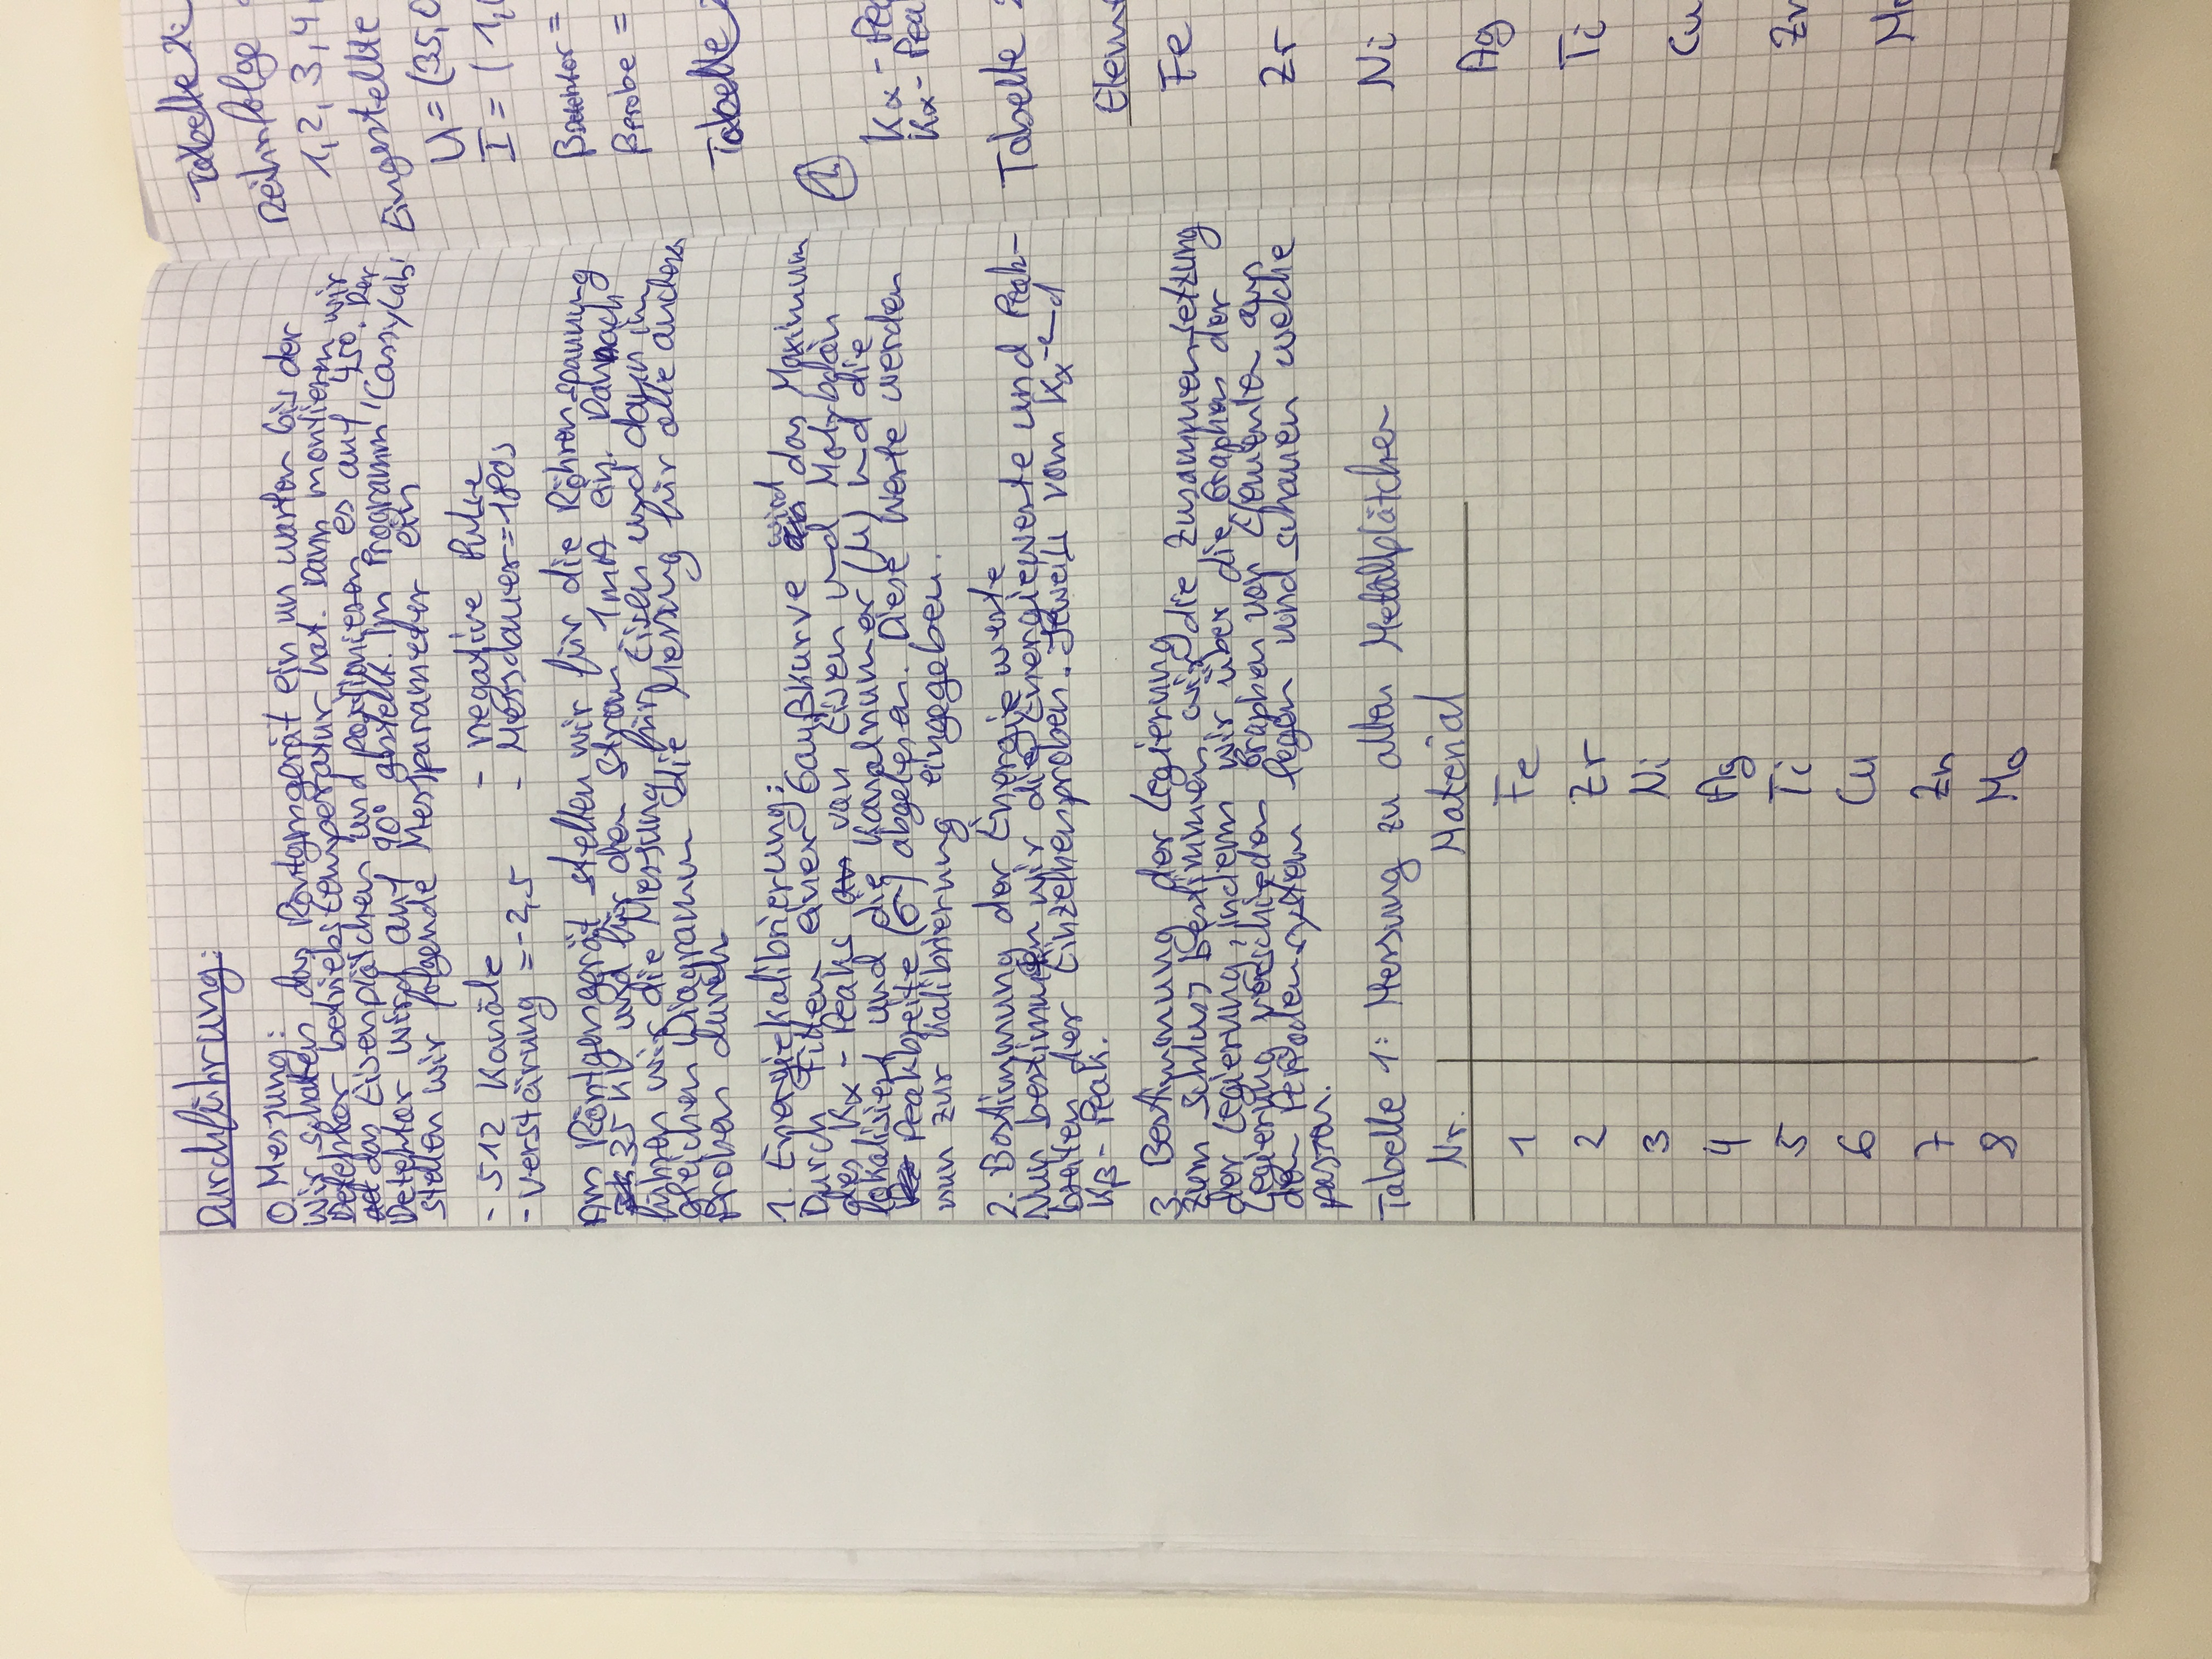 Durchführung:
0. Messung:
Wir schalten das Röntgengerät ein un warten bis der
Detektor betriebstemperatur hat. Dann montieren wir
das Eisenplätchen und positionieren es auf 45°. Der
Detektor wird auf 90° gestellt. Im Programm 'CassyLab'
stellen wir folgende Messparameter ein
- 512 Kanäle - negative Pulse
- Verstärung = -2,5 - Messdauer = 180s
Am Röntgengerät stellen wir für die Röhrenspannung
35 KV und für den Strom 1mA ein. Dannach
führen wir die Messung für Eisen und dann im
gleichen Diagramm die Messung für alle anderen
Proben durch
1. Energiekalibrierung:
Durch Fitten einer Gaußkurve wird das Maximum
des Kα - Peaks von Eisen und Molybdän
lokalisiert und die Kanalnumer (μ) und die
Peakbreite (σ) abgelesen. Diese Werte werden
nun zur Kalibrierung eingegeben.
2. Bestimmung der Energiewerte
Nun bestimmen wir die Energiewerte und Peak-
breiten der Einzelnenproben. Jeweils vom Kα- und
Kβ - Peak.
3. Bestimmung der Legierung
Zum Schluss bestimmen wir die Zusammensetzung
der Legierung, indem wir über die Graphen der
Legierung verschieden Graphen von Elementen aus
den Periodensystem legen und schauen welche
passen.
Tabelle 1: Messung zu allen Metallplätchen
Nr. Material
1 Fe
2 Zr
3 Ni
4 Ag
5 Ti
6 Cu
7 Zn
8 Mo
Tabelle
Reihnfolge
1, 2, 3, 4,
Eingestellte
U = (35,0
I = (1,
βDetektor =
βProbe =
Tabelle
1.
Kα - Pea
Kα - Pea
Tabelle
Eleme
Fe
Zr
Ni
Ag
Ti
Cu
Mo